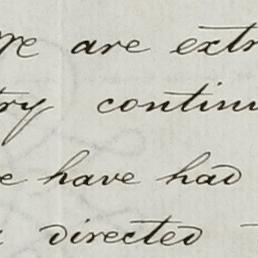 We are extr
try continu
e have had
directed